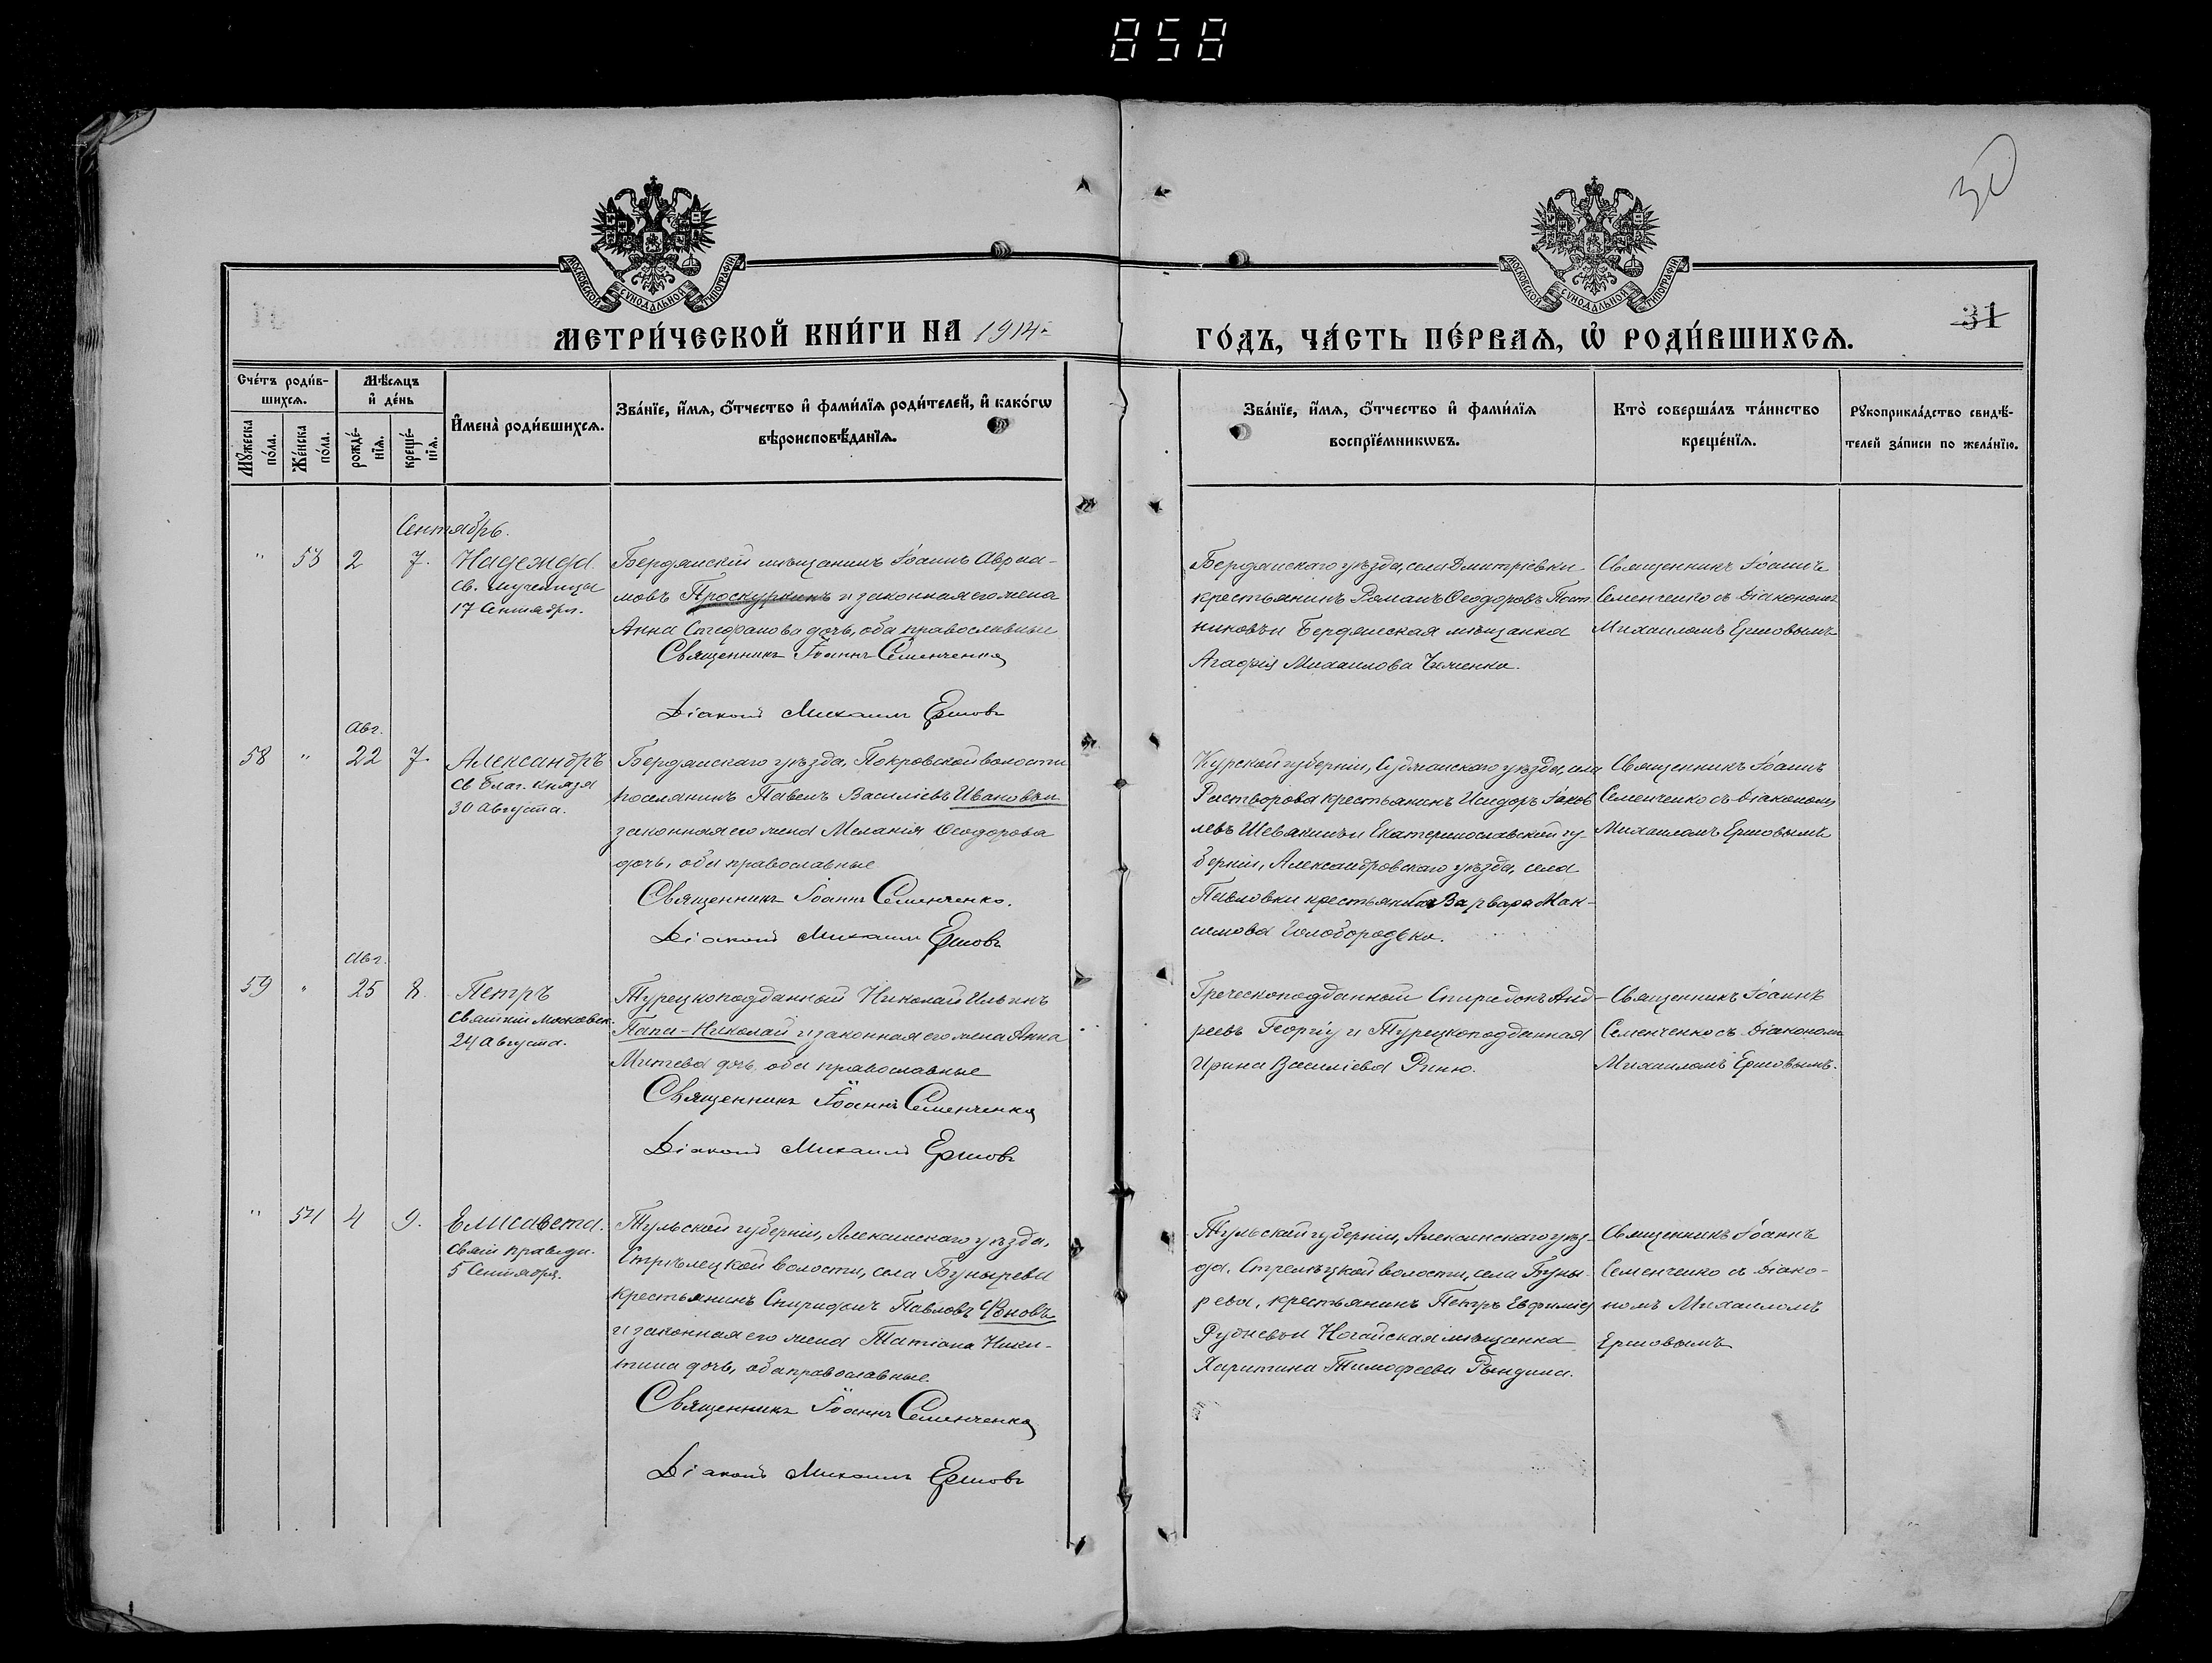 858
30
МОСКОВСКОЙ СѴНОДАЛЬНОЙ ТИПОГРАФІИ
МОСКОВСКОЙ СѴНОДАЛЬНОЙ ТИПОГРАФІИ
МЕТРИ́ЧЕСКОЙ КНИ́ГИ НА 1914
ГО́ДЪ, ЧА́СТЬ ПЕ́РВАѦ, Ѡ҆ РОДИ́ВШИХСѦ.
31
Сче́тъ роди́в-
шихсѧ.
Мѣ́сѧцъ
и҆ де́нь
Мꙋ́жеска
по́ла.
Же́нска
по́ла.
рожде́-
нїѧ.
креще́-
нїѧ.
И҆мена̀ роди́вшихсѧ.
Зва́нїе, и҆́мѧ, ѻ҆́тчество и҆ фами́лїѧ роди́телей, и҆ како́гѡ
вѣроисповѣ́данїѧ.
Зва́нїе, и҆́мѧ, ѻ҆́тчество и҆ фами́лїѧ
воспрїе́мникѡвъ.
Кто̀ соверша́лъ та́инство
креще́нїѧ.
Рꙋкоприкла́дство свидѣ́-
телей за́писи по жела́нїю.
Сентябрь.
" 53 2 7. Надежда.
св. мученицы
17 Сентября.
Бердянскій мѣщанинъ Іоаннъ Авраа-
мовъ Проскурнинъ и законная его жена
Анна Стефанова дочь, оба православные
Священникъ Іоаннъ Семенченко
Діаконъ Михаилъ Ершовъ
Бердянскаго уѣзда, села Дмитріевки
крестьянинъ Романъ Ѳеодоровъ Пост
никовъ и Бердянская мѣщанка
Агафія Михаилова
Священникъ Іоаннъ
Семенченко съ Діакономъ
Михаиломъ Ершовымъ
Авг.
58 " 22 7. Александръ
св благ. князя
30 Августа.
Бердянскаго уѣзда, Покровской волости
поселянинъ Павелъ Василіевъ Ивановъ и
законная его жена Меланія Ѳеодорова
дочь, оба православные
Священникъ Іоаннъ Семенченко.
Діаконъ Михаилъ Ершовъ
Курской губерніи, Суджанскаго уѣзда, села
Растворова крестьянинъ Исидоръ Іаков
левъ Шевякинъ и Екатеринославской гу-
берніи, Александровскаго уѣзда, села
Павловки крестьянка Варвара Мак-
симова Голобородька.
Священникъ Іоаннъ
Семенченко съ Діакономъ
Михаиломъ Ершовымъ
Авг.
59 " 25 8. Петръ
Святит. Московск.
24 Августа.
Турецкоподданный Николай Ильинъ
Папа-Николай и законная его жена Анна
дочь, оба православные
Священникъ Іоаннъ Семенченко
Діаконъ Михаилъ Ершовъ
Греческоподданный Спиридонъ Анд-
реевъ Георгіу и Турецкоподданная
Ирина Василіева
Священникъ Іоаннъ
Семенченко съ Діакономъ
Михаиломъ Ершовымъ.
" 54 4 9. Елисавета.
Святой праведн.
5 Сентября.
Тульской губерніи, Алексинскаго уѣзда,
Стрѣлецкой волости, села Бунырева
крестьянинъ Спиридонъ Павловъ
и законная его жена Татіана Ники-
тина дочь, оба православные.
Священникъ Іоаннъ Семенченко
Діаконъ Михаилъ Ершовъ
Тульской губерніи, Алексинскаго уѣз-
да, Стрелецкой волости, села Буны-
рева, крестьянинъ Петръ Евфиміев
Рудневъ и Ногайская мѣщанка
Харитина Тимофеева Рындина.
Священникъ Іоаннъ
Семенченко съ Діако-
номъ Михаиломъ
Ершовымъ